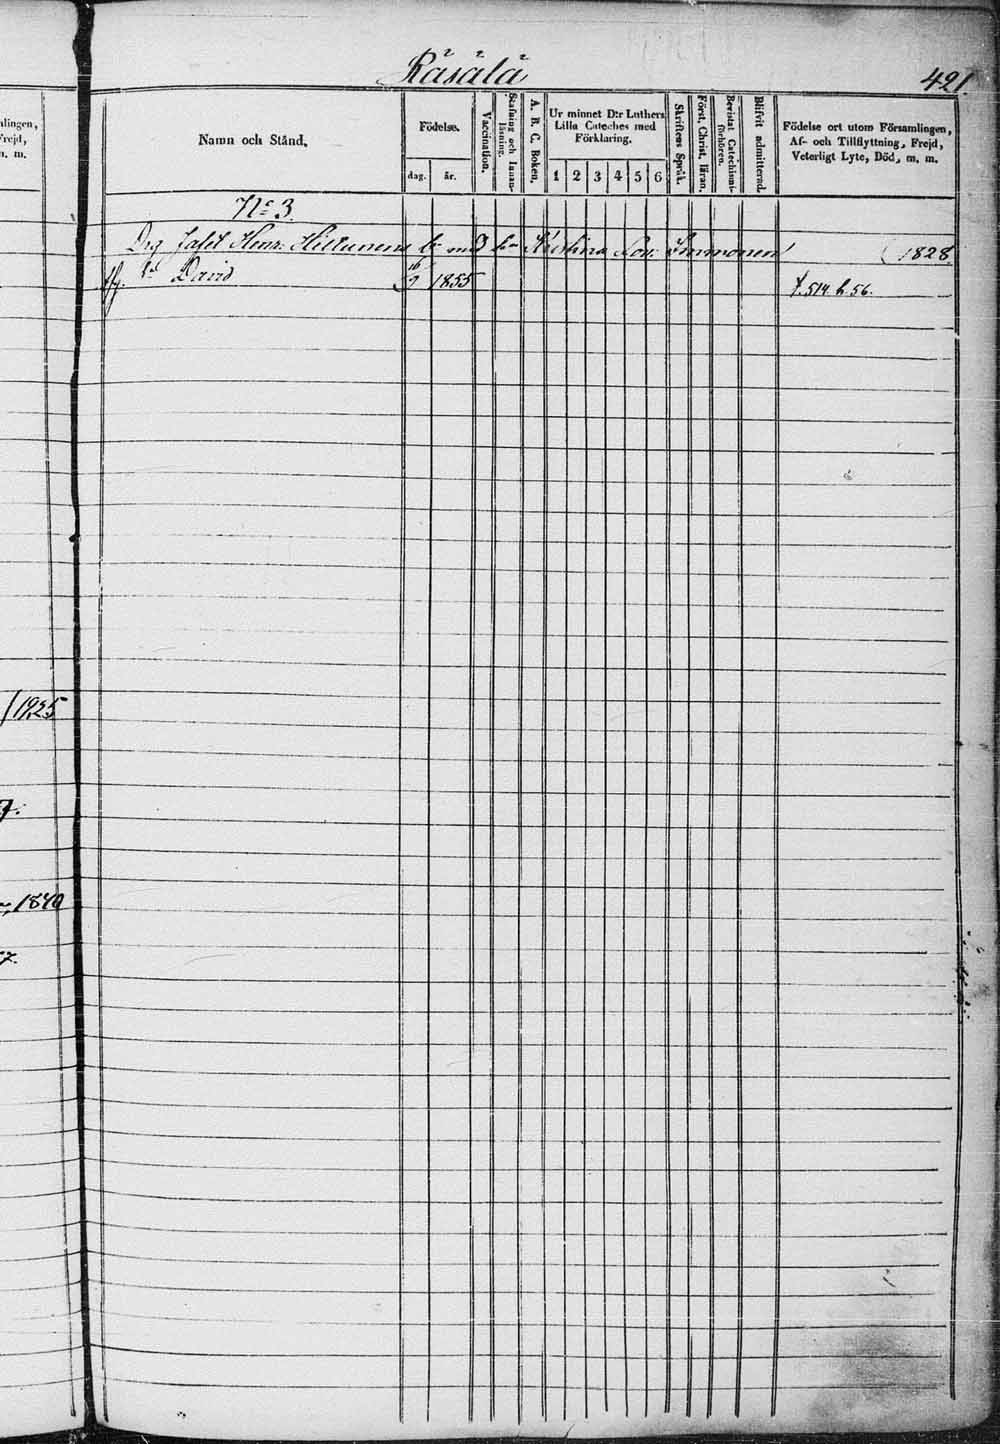 Räsälä
421.
Namn och Stånd.
Födelse.
dag.
år.
Vaccination.
Stafning och Innan-
läsning.
A. B. C. Boken.
Ur minnet D:r Luthers
Lilla Cateches med
Förklaring.
1 2 3 4 5 6
Skriftens Språk.
Först. Christ. läran.
Bevistat Catechismi-
förhören.
Blifvit admitterad.
Födelse ort utom Församlingen,
Af- och Tillflyttning, Frejd,
Veterligt Lyte, Död, m. m.
No 3.
Drg Jafet Henr: Hiltunens b. med h:u Kristina Immonen 1828.
David 1855 f. 514. b. 56.
mlingen,
Frejd,
n. m.
1925
1840
7.